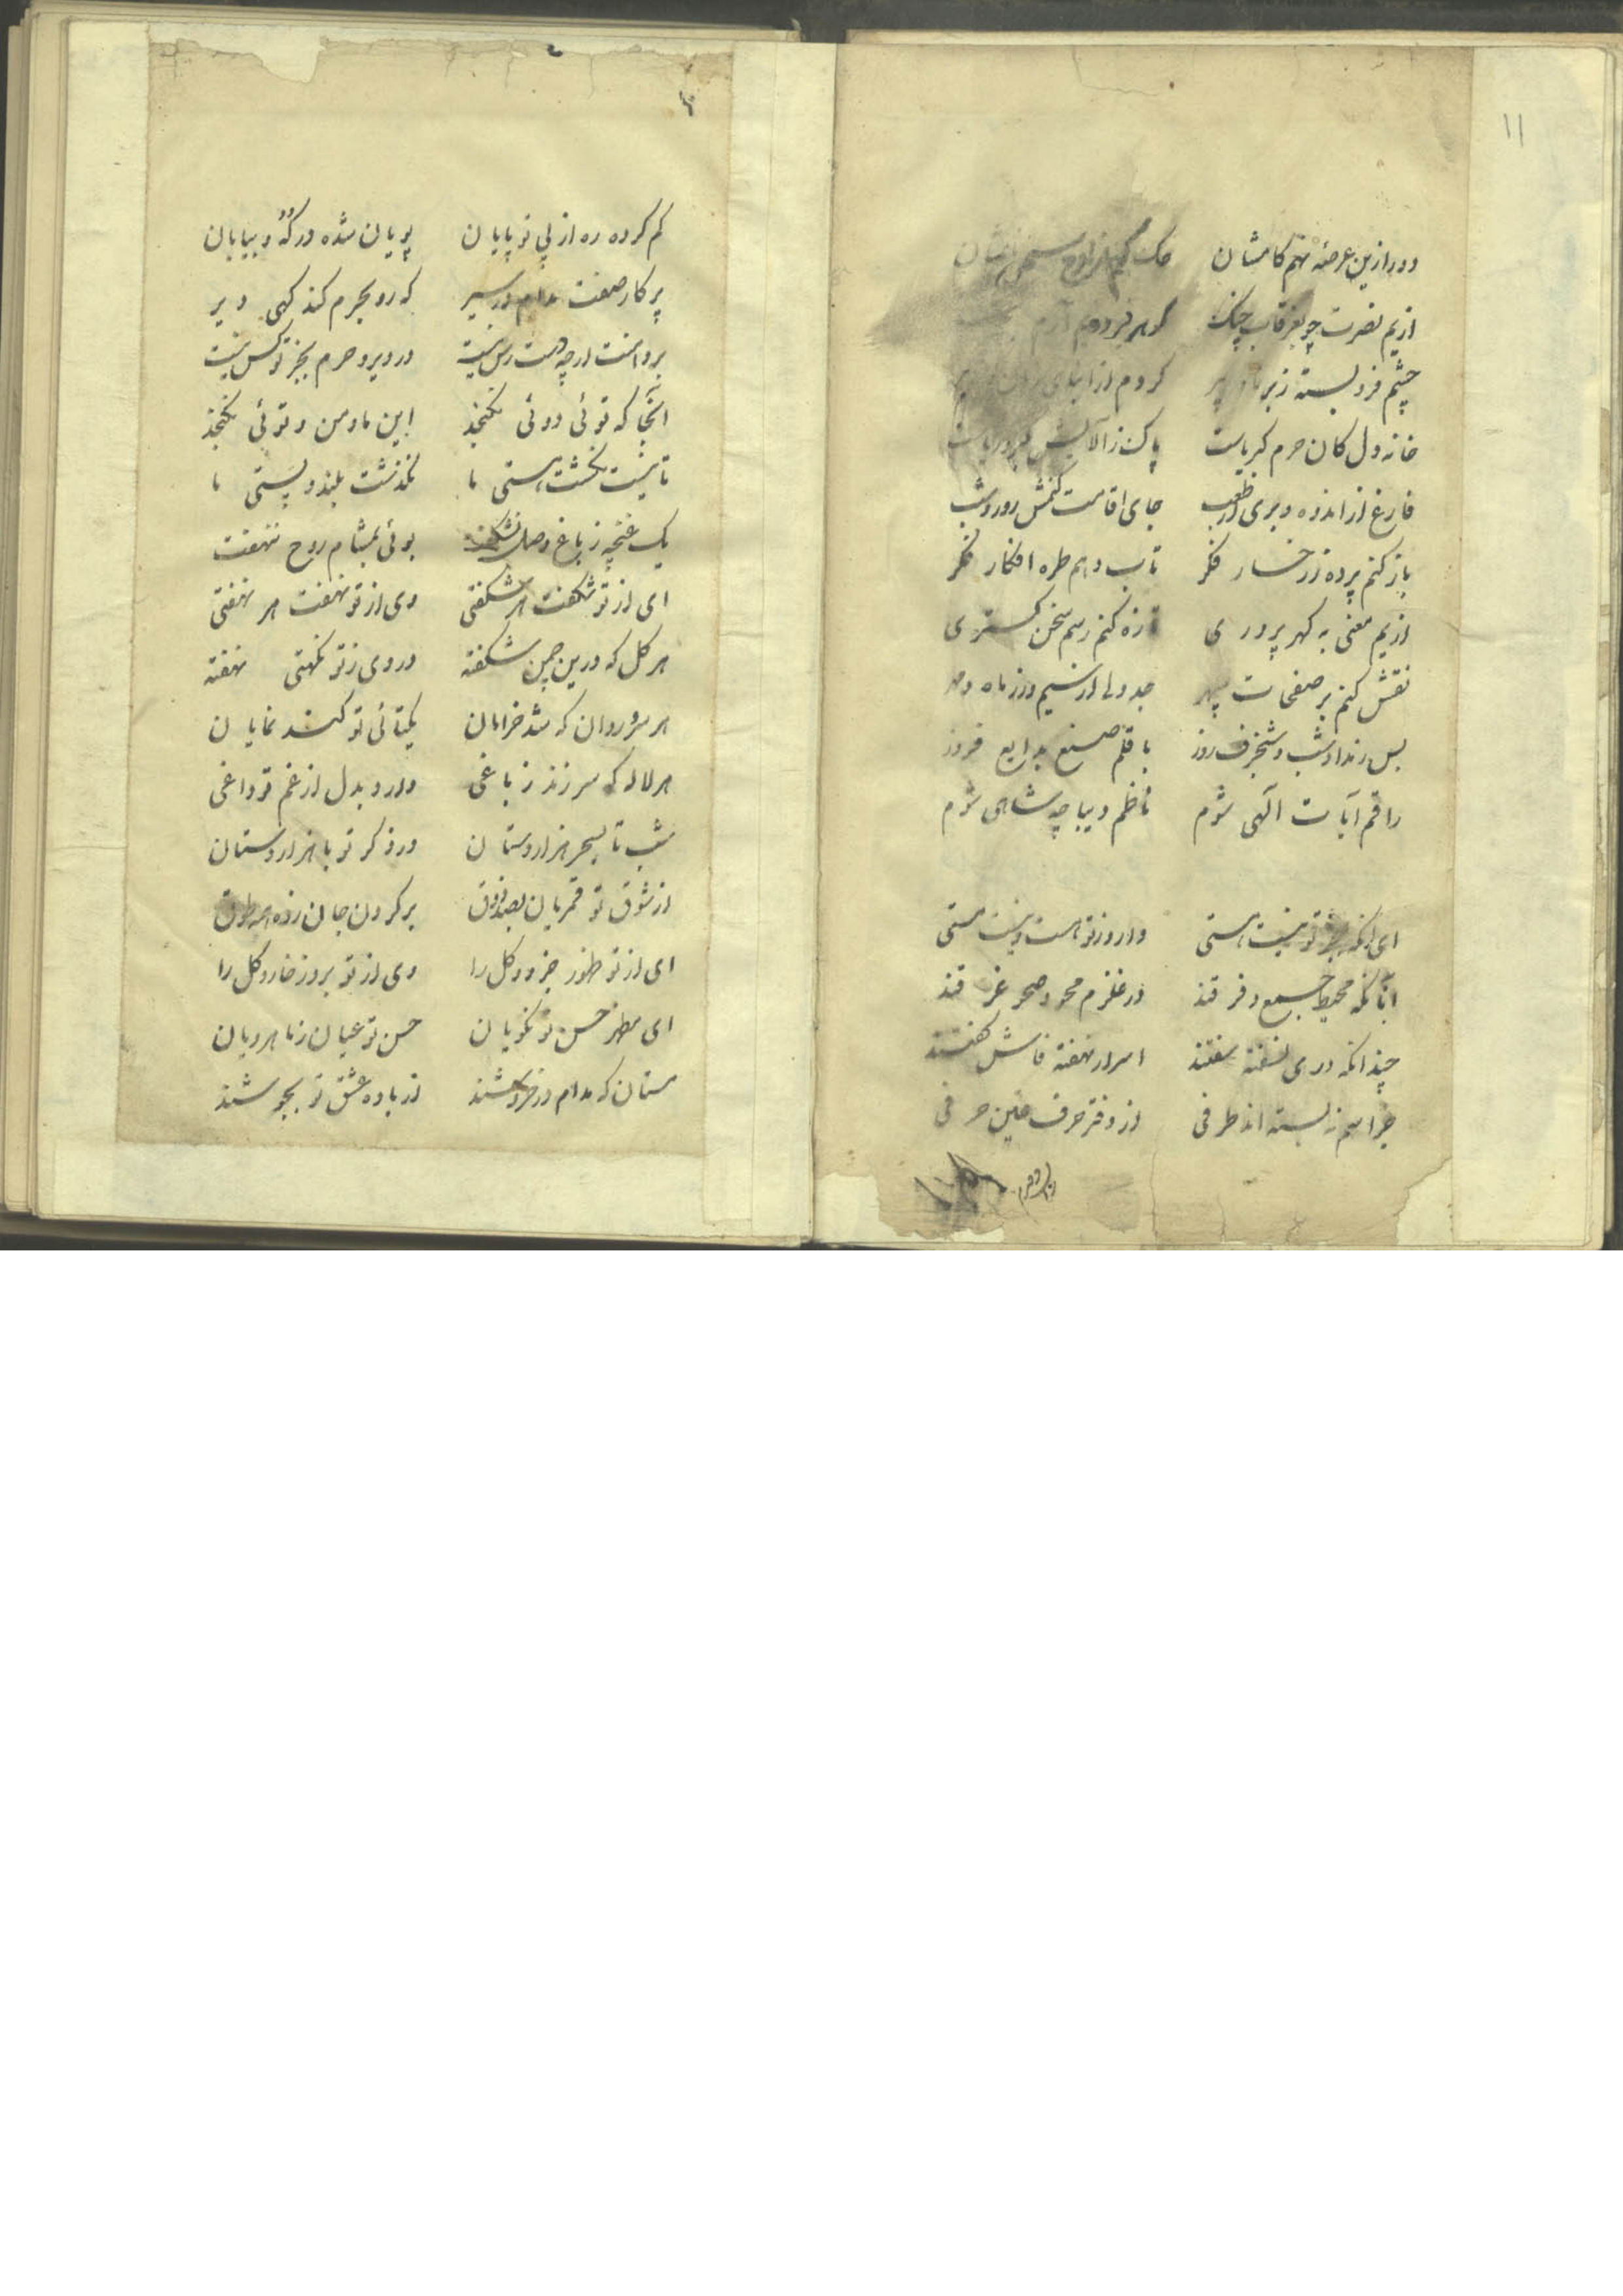 ۱۱
دور ازین عرصه نهم کامشان حک کنم از لوح
ازیم نصرت چو بغرقاب جنگ گوهر فردوم آرم
چشم فرو بسته زیر کردم از ابنای
خانه دل کان حرم کبریاست پاک ز آلایش
فارغ از اندوه و بری از طرب جای اقامت کنمش روز و شب
باز کنم پرده ز رخسار فکر تاب دهم طره افکار فکر
ازیم معنی به گهر پروری تازه کنم رسم سخن گستری
نقش کنم بر صفحات سپهر جدولی از سیم و زر ماه و مهر
پس ز مداد شب و شنجرف روز با قلم صنع بدایع فروز
راقم آیات الهی شوم ناظم دیباچه شاهی شوم
ای آنکه بجز تو نیست هستی وارو ز تو هست و نیست مستی
آنانکه محیط جمع و فرقند در قلزم محو و صحو غرقند
چندانکه دری نسفته سفتند اسرار نهفته فاش گفتند
جز اسم نبسته اند طرفی از دفتر حرف عین حرفی
گم کرده ره از پی تو پایان پویان شده در که و بیابان
پرکار صفت مدام در سیر که رو بحرم کند گهی دیر
بر دامنت ارچه دست رس نیست در دیر و حرم بجز تو کس نیست
آنجا که توئی دوئی نگنجد این ما و من و توئی نگنجد
تا نیست نگشت هستی ما نگذشت بلند و پستی ما
یک غنچه ز باغ وصل نشکفت بوئی بمشام روح ننهفت
ای از تو شکفت هر شکفتی وی از تو نهفت هر نهفتی
هر گل که درین چمن شکفته در وی ز تو نکهتی نهفته
هر سرو روان که شد خرامان یکتائی تو کند نمایان
هر لاله که سر زند ز باغی دارد بدل از غم تو داغی
شب تا بسحر هزار دستان در ذکر تو با هزار دستان
از شوق تو قمریان بصد ذوق بر گردن جان زده همه طوق
ای از تو ظهور جزو و کل را وی از تو بروز خار و گل را
ای مظهر حسن تو نکویان حسن تو عیان ز ماهرویان
مستان که مدام در خروشند از باده عشق تو بجوشند